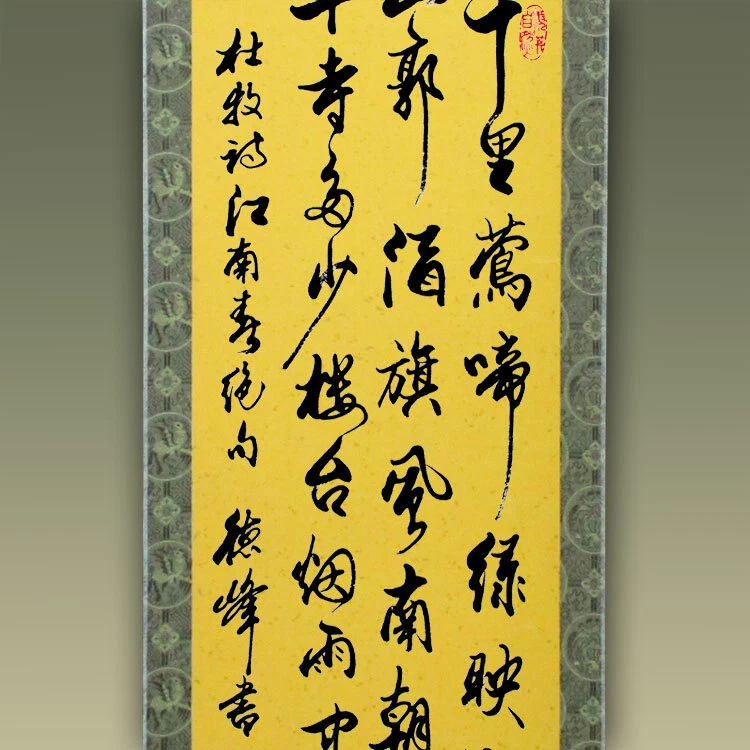 千里莺啼绿映
山郭酒旗风南朝
十寺多少楼台烟雨中
杜牧诗江南春绝句 德峰書